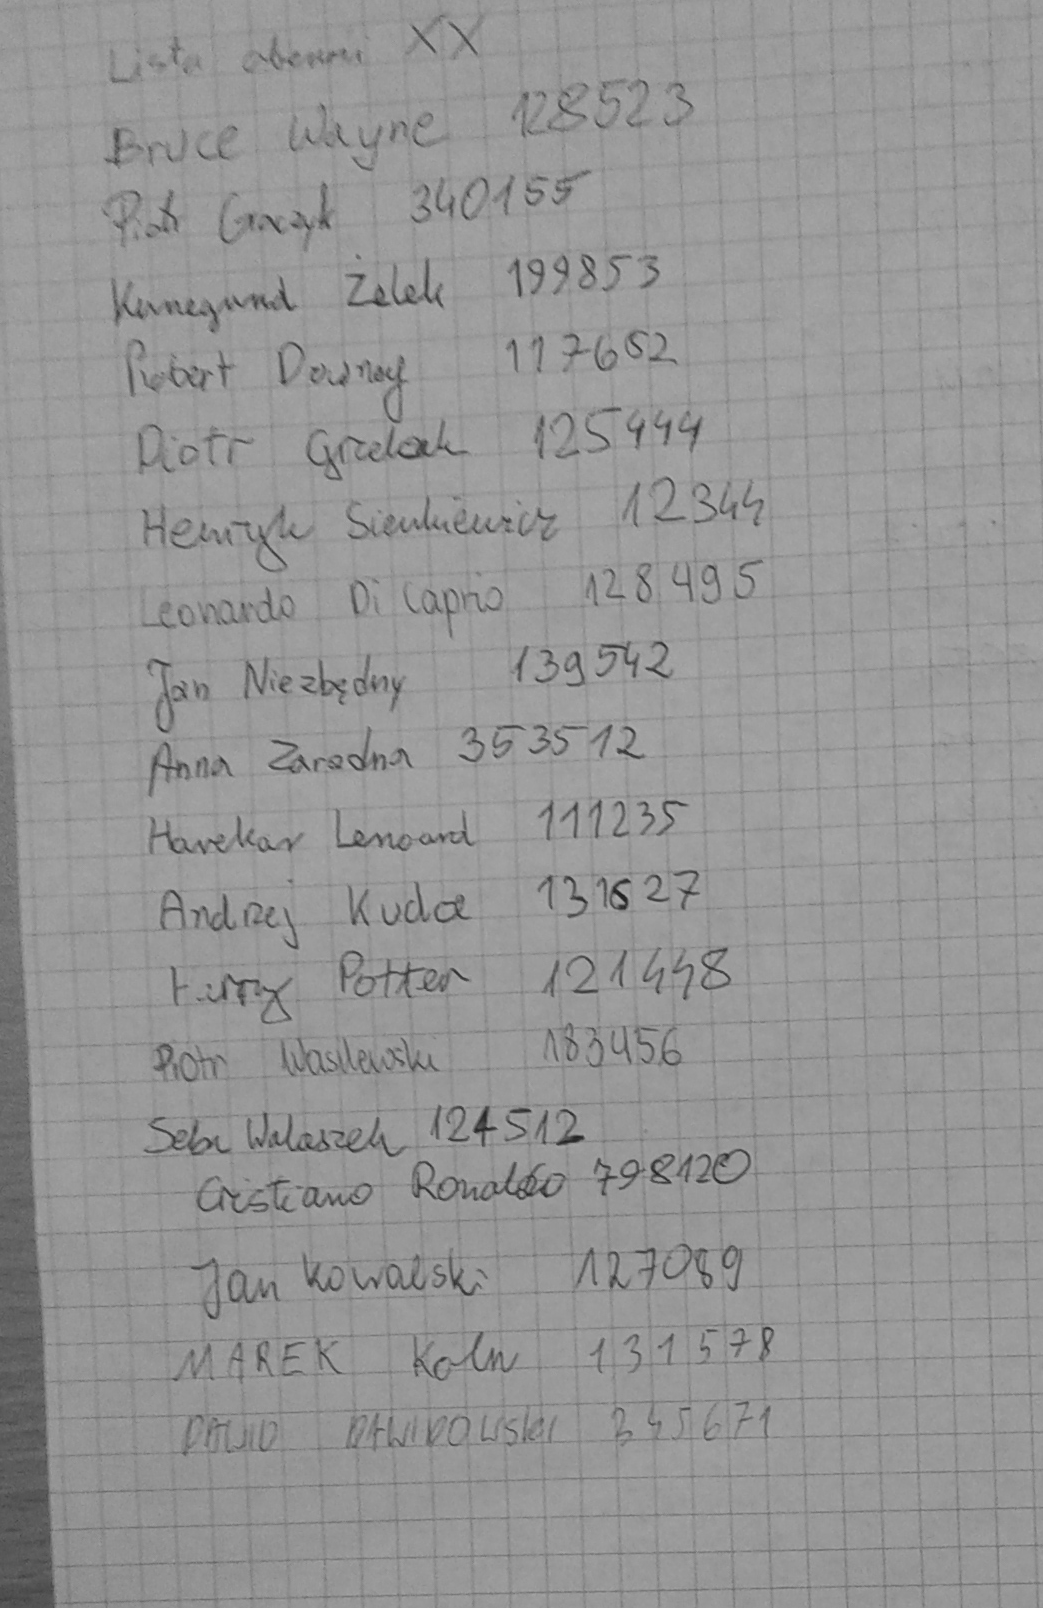 Lista obecności XX
Bruce Wayne 128523
Piotr Graczyk 340155
Kunegund Żelek 199853
Robert Downey 117652
Piotr Grzelak 125444
Henryk Sienkiewicz 12344
Leonardo Di Caprio 128495
Jan Niezbędny 139542
Anna Zaradna 353512
Harekar Lenoard 111235
Andrzej Kudła 131627
Harry Potter 121448
Piotr Wasilewski 183456
Seba Walaszek 124512
Cristiano Ronaldo 798120
Jan Kowalski 127089
MAREK Koln 131578
DAWID DAWIDOWSKI 345671